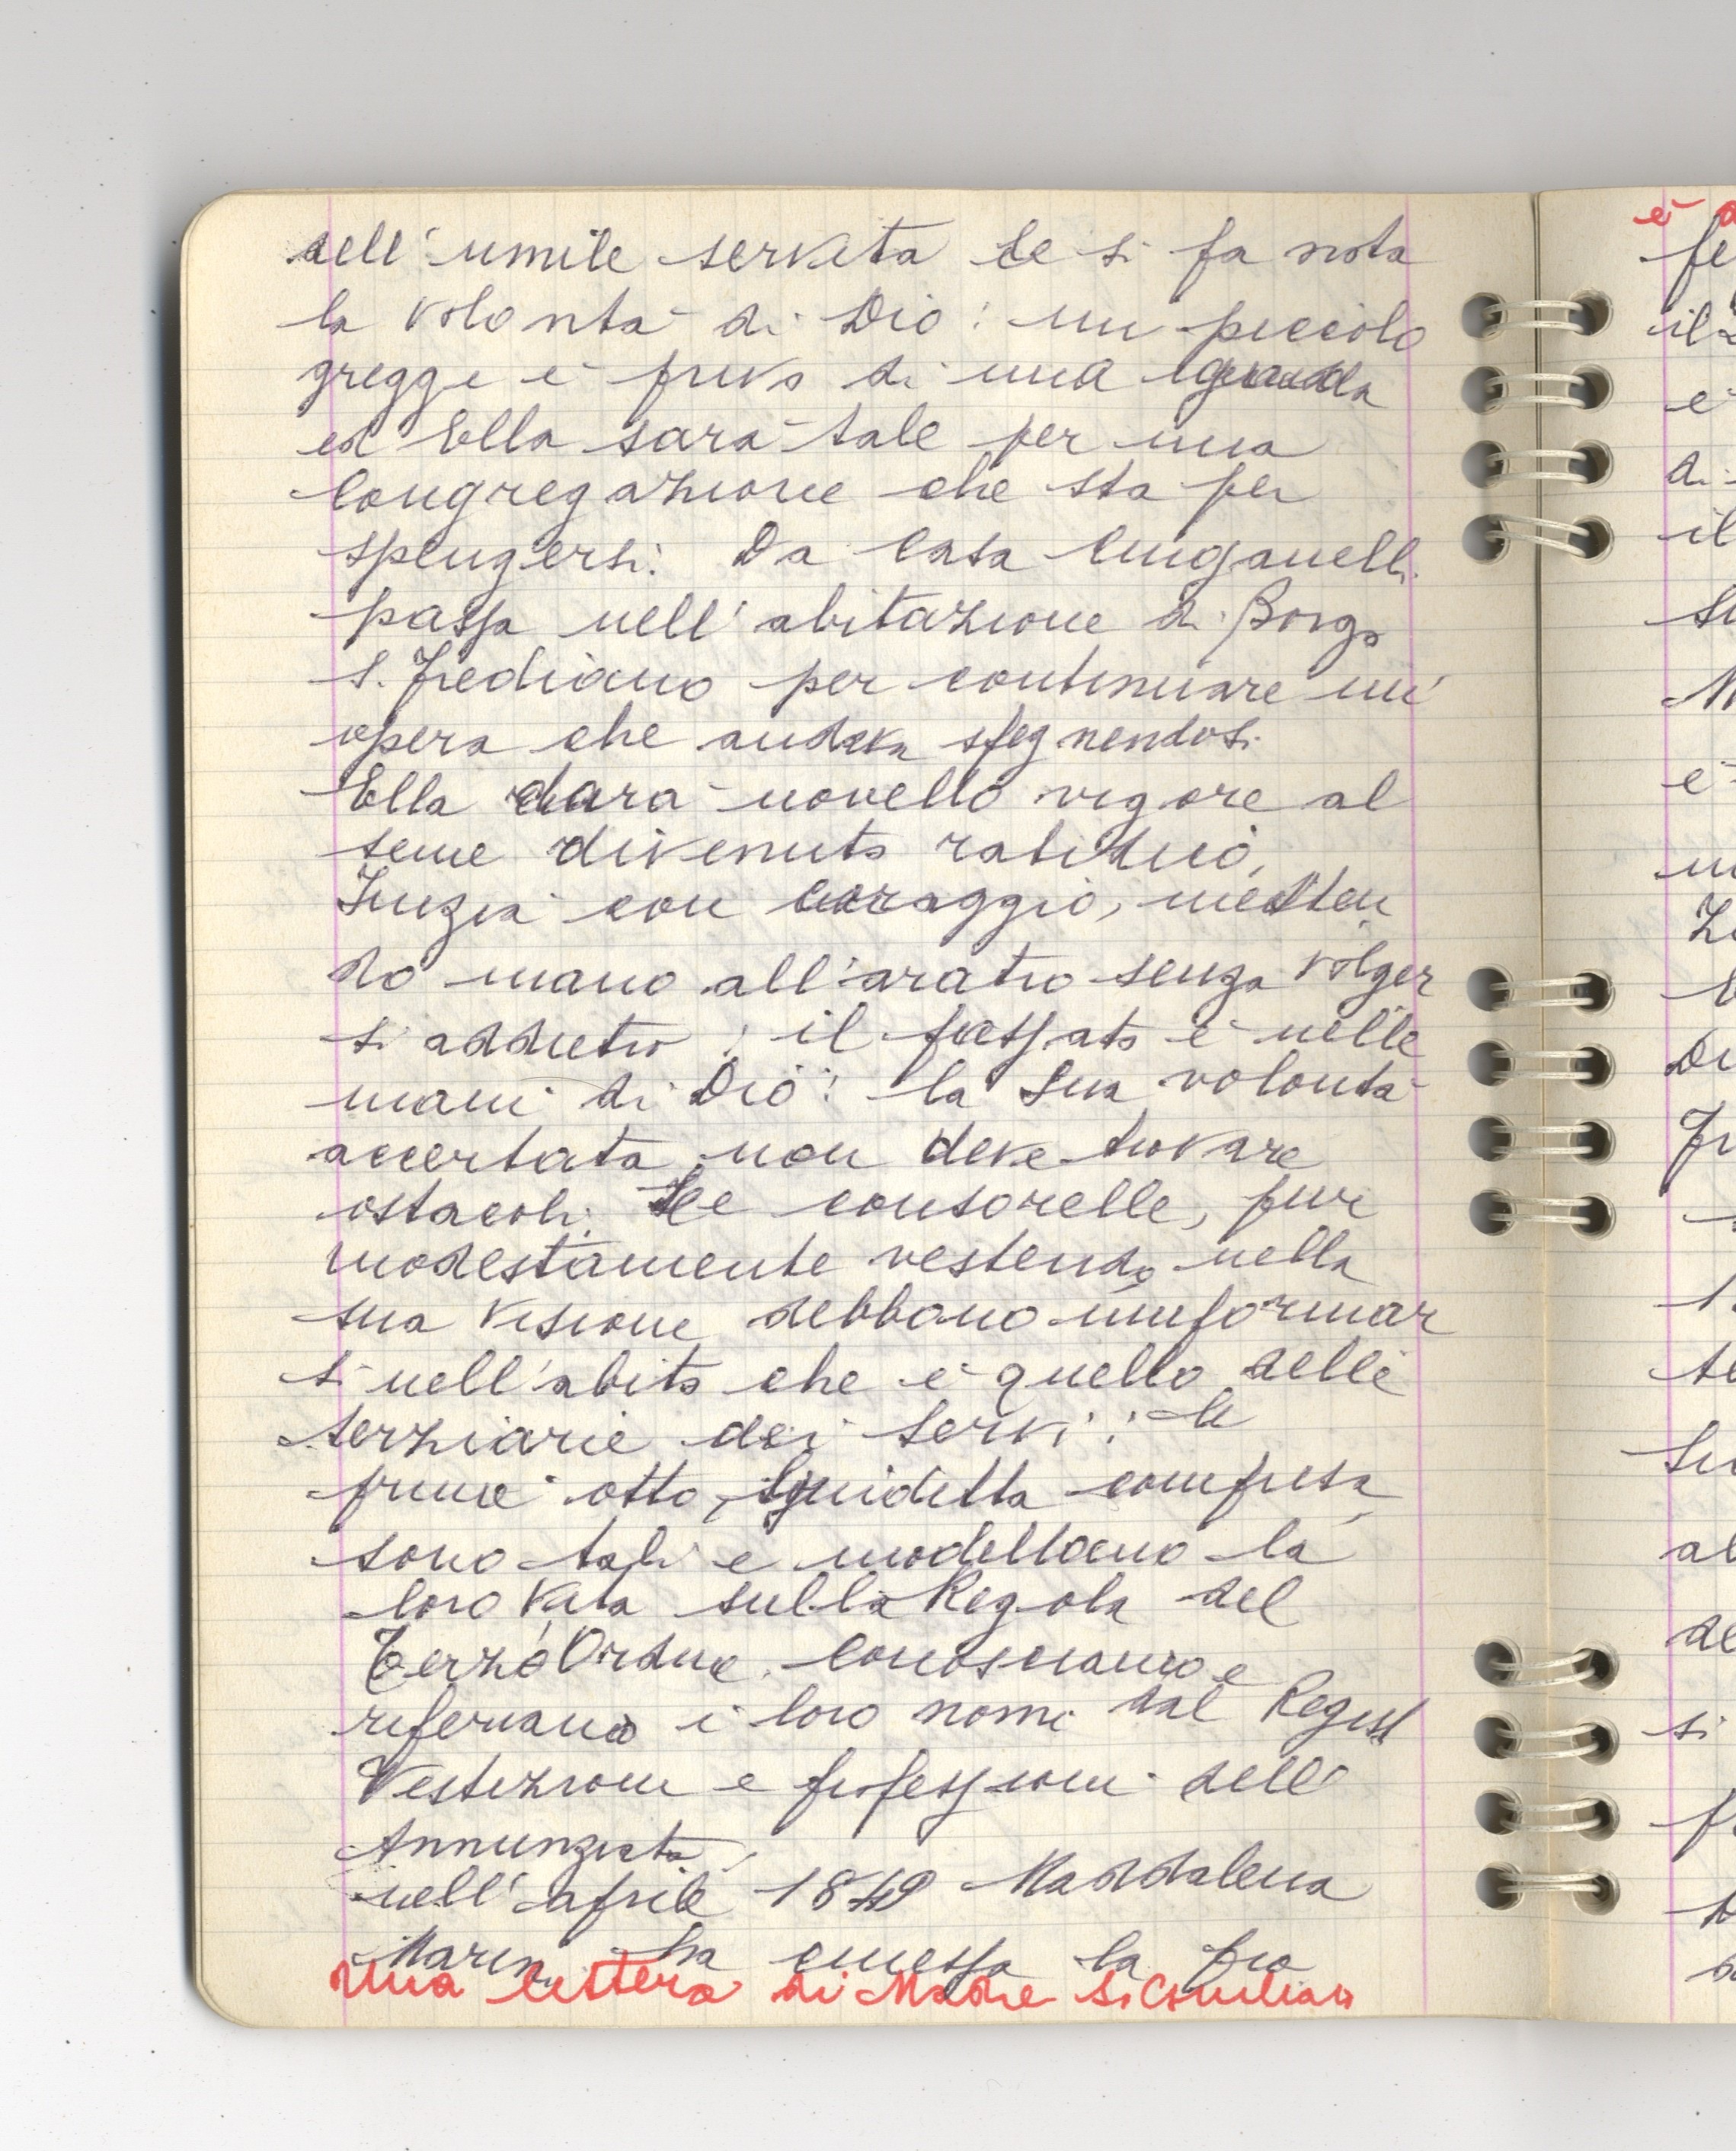 dell'umile servita le si fa nota
la volontà di Dio: un piccolo
gregge è privo di una guida
ed Ella sarà tale per una
Congregazione che sta per
spengersi. Da Casa
passa nell'abitazione di Borgo
S. Frediano per continuare un'
opera che andava spegnendosi.
Ella darà novello vigore al
seme divenuto
Inizia con coraggio, metten
do mano all'aratro senza volger
si addietro: il passato è nelle
mani di Dio: la Sua volontà
accertata non deve trovare
ostacoli. Le consorelle, pur
modestamente vestendo nella
sua visione debbono uniformar
si nell'abito che è quello delle
terziarie dei Servi: le
prime otto, Giuditta compresa,
sono tali e modellano la
loro vita sulla Regola del
Terzo Ordine. Conosciamo e
riferiamo i loro nomi dal Regist
Vestizioni e professioni dell'
Annunziata.
nell'aprile 1849 Maddalena
Marin ha emessa la pro
Una lettera di Madre
è
fe
il
e
a.
il
Su
e